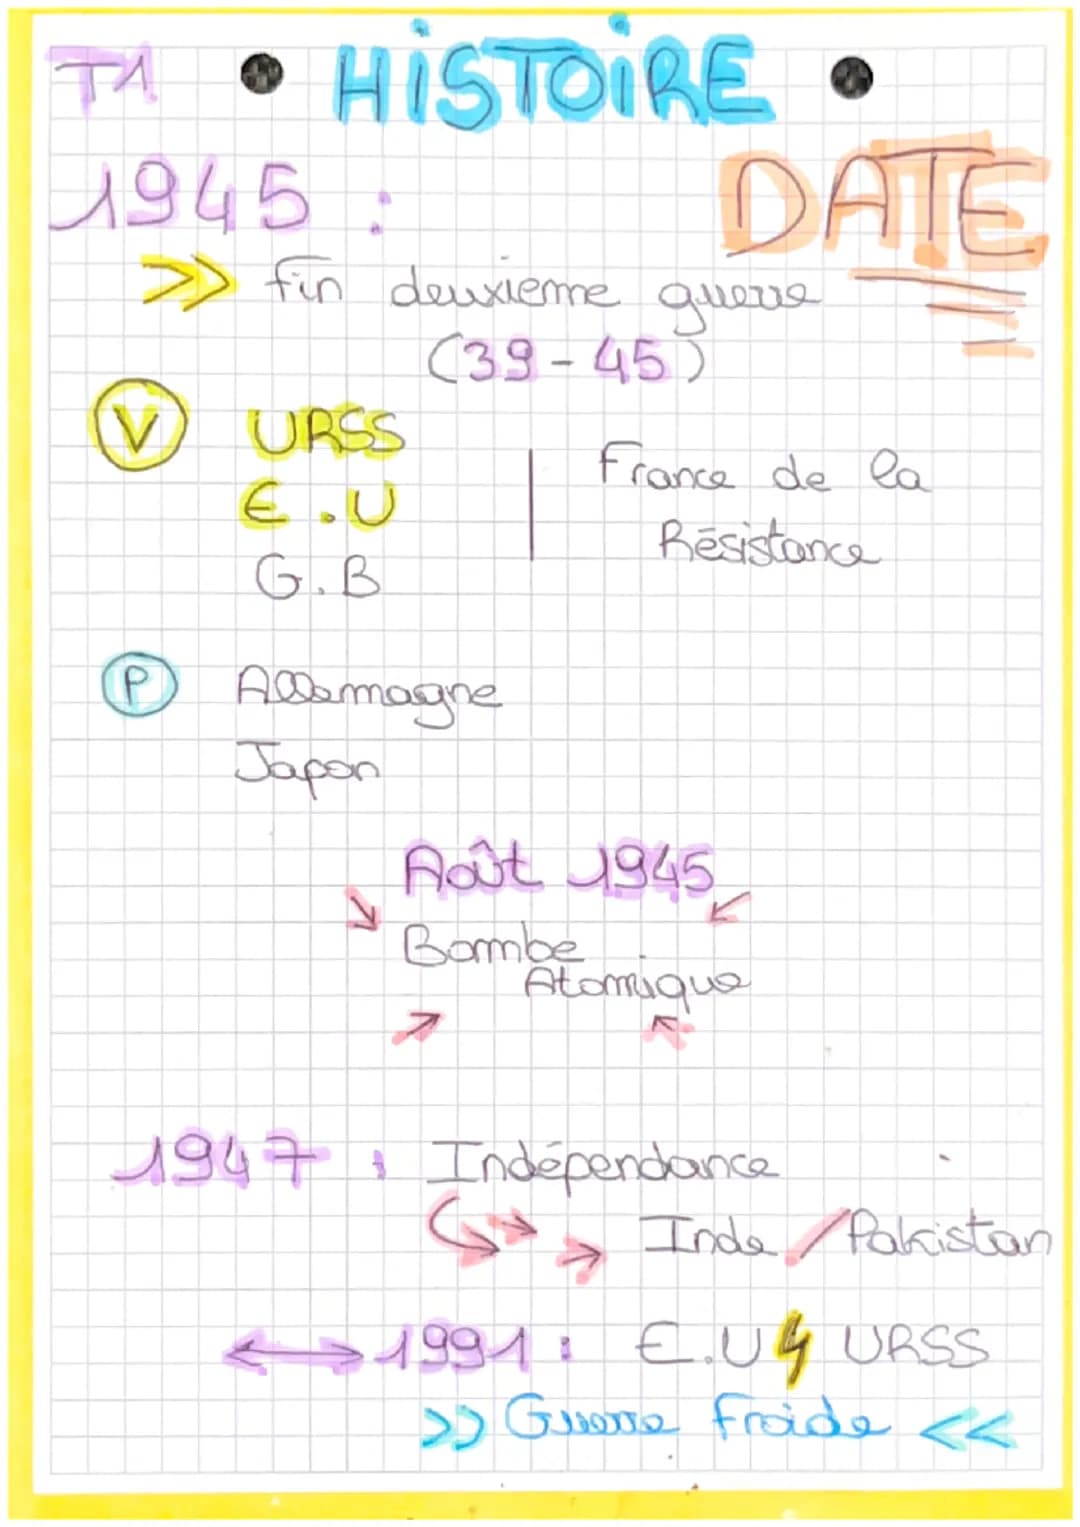 T1 HiSTOiRE
DATE
1945 :
>> fin deuxième guerre
(39-45)
V URSS
E.U
G.B
France de la
Résistance
P Allemagne
Japon
Août 1945
Bombe
Atomique
1947 : Indépendance
Inde / Pakistan
↔ 1991 : E.U ϟ URSS
>> Guerre froide <<